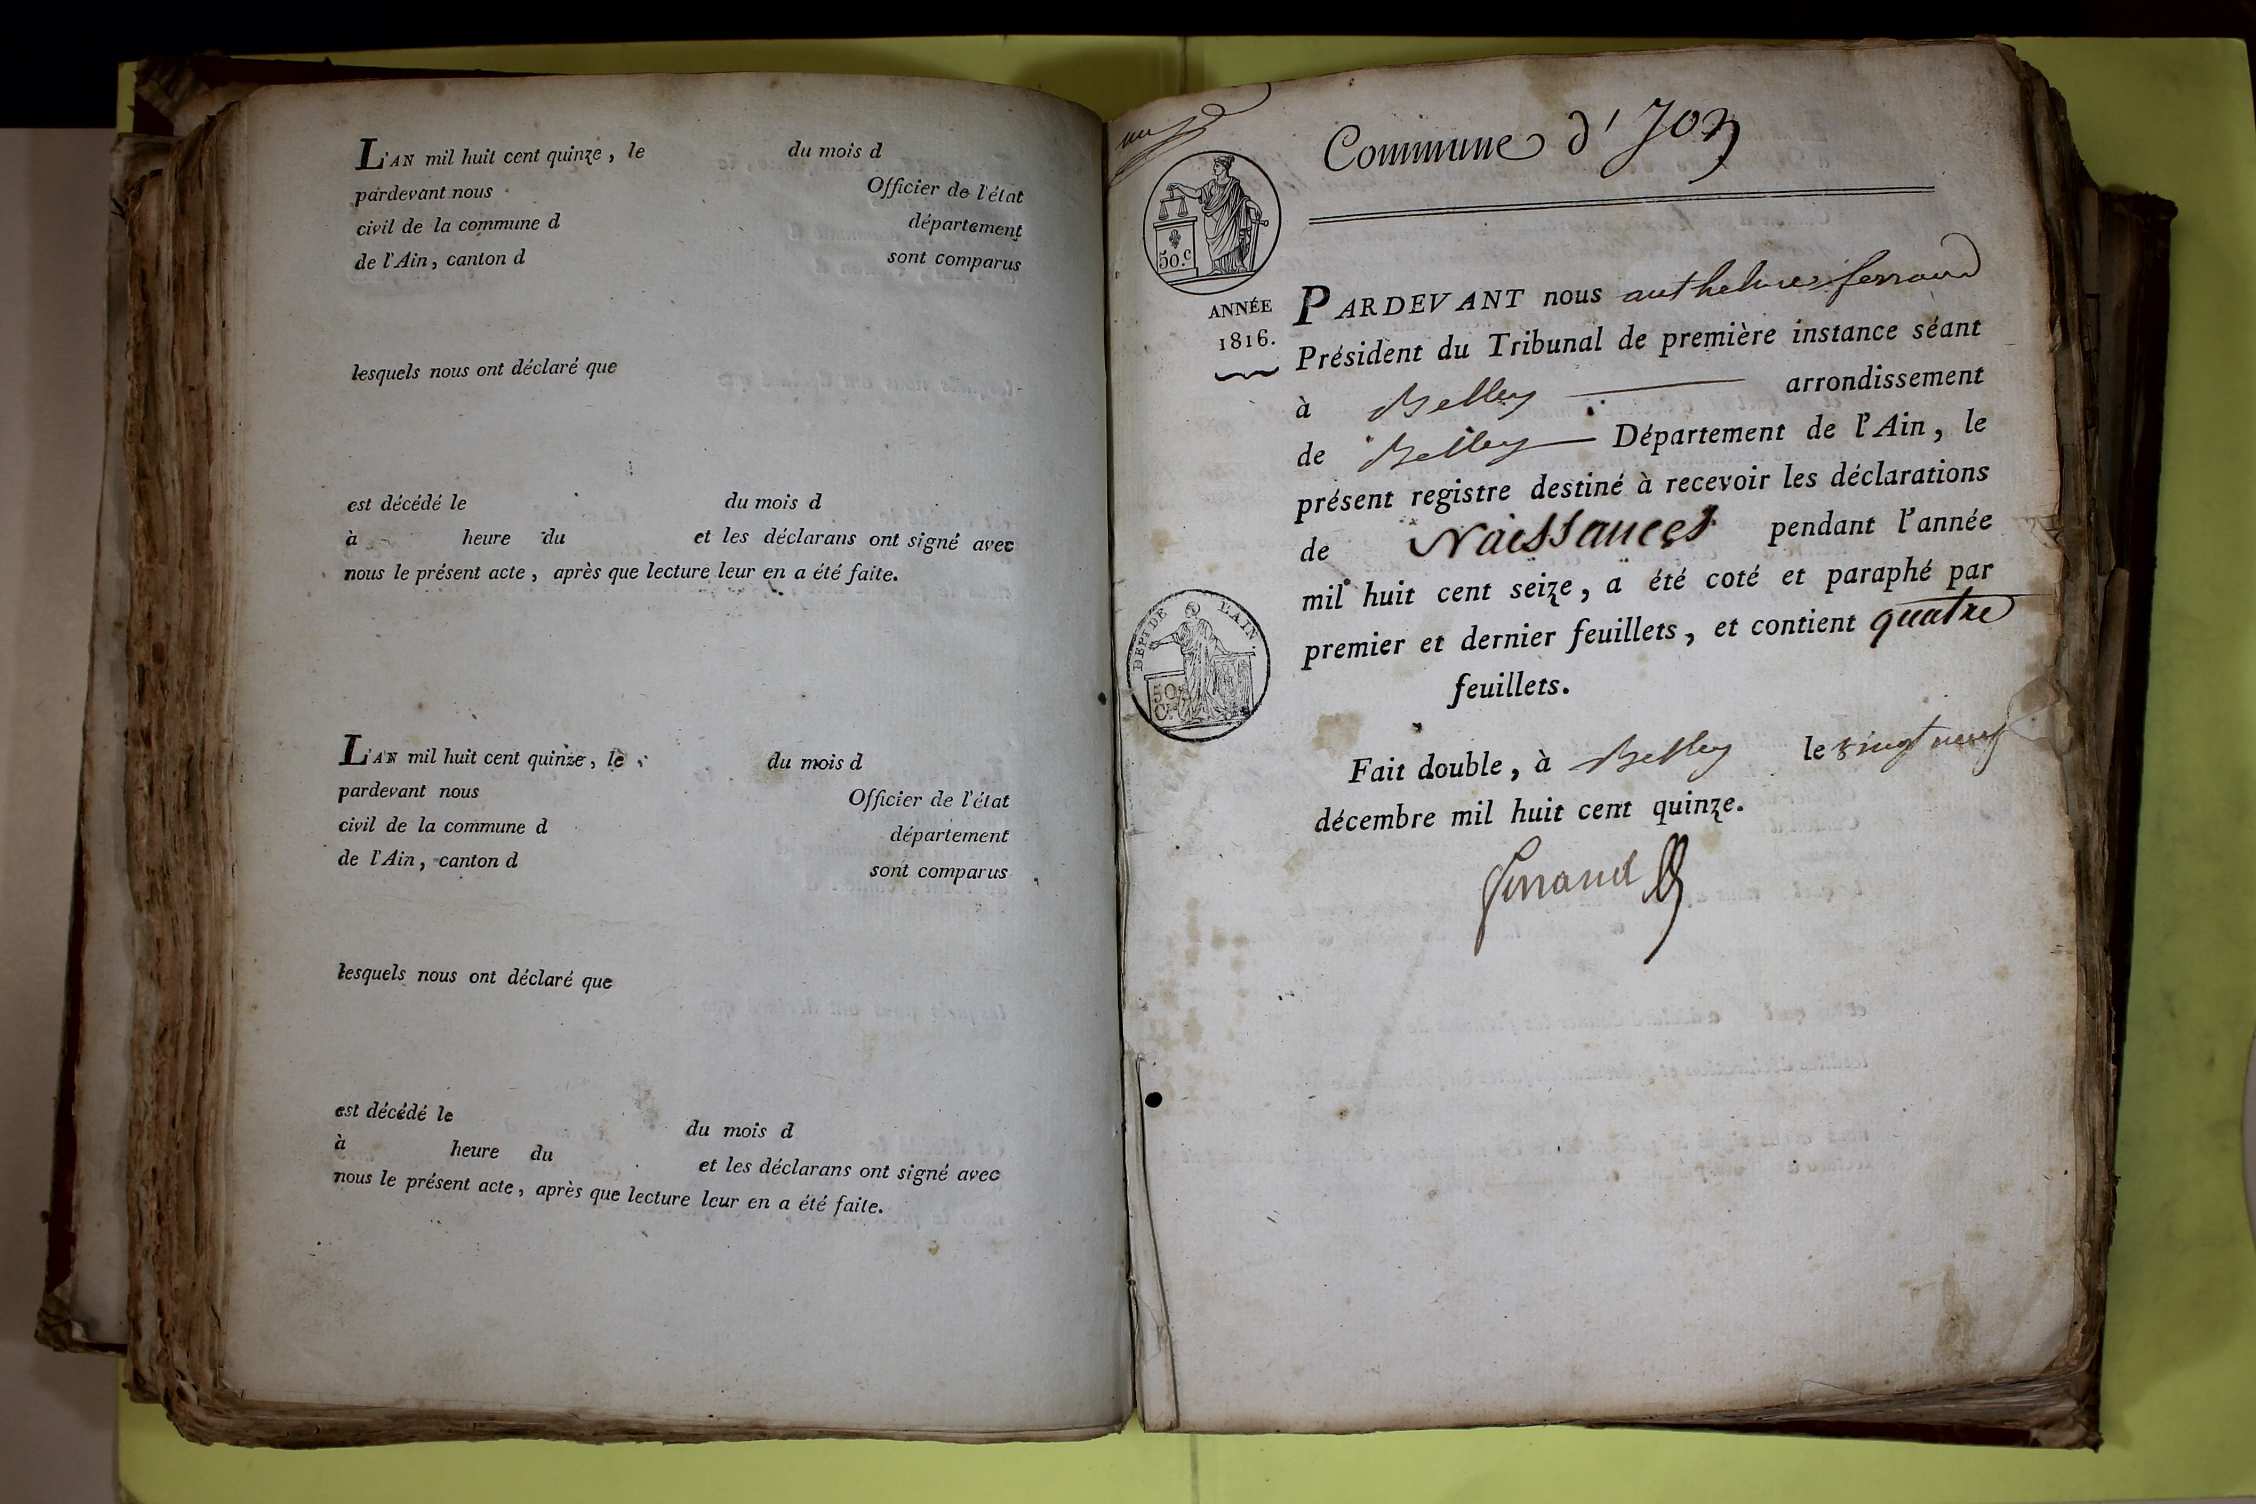 L'AN mil huit cent quinze, le du mois d
pardevant nous Officier de l'état
civil de la commune d département
de l'Ain, canton d sont comparus
lesquels nous ont déclaré que
est décédé le du mois d
à heure du et les déclarans ont signé avec
nous le présent acte, après que lecture leur en a été faite.
L'AN mil huit cent quinze, le du mois d
pardevant nous Officier de l'état
civil de la commune d département
de l'Ain, canton d sont comparus
lesquels nous ont déclaré que
est décédé le du mois d
à heure du et les déclarans ont signé avec
nous le présent acte, après que lecture leur en a été faite.
Commune d'
50.c
ANNÉE
1816.
DEPT DE L'AIN.
50
C.
PARDEVANT nous anthelme ferrand
Président du Tribunal de première instance séant
à Belley arrondissement
de Belley Département de l'Ain, le
présent registre destiné à recevoir les déclarations
de Naissances pendant l'année
mil huit cent seize, a été coté et paraphé par
premier et dernier feuillets, et contient quatre
feuillets.
Fait double, à Belley le vingt neuf
décembre mil huit cent quinze.
ferrand